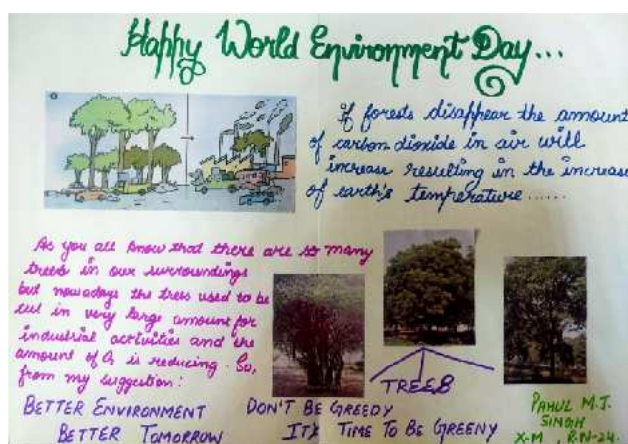 Happy World Environment Day...
If forests disappear the amount
of carbon dioxide in air will
increase resulting in the increase
of earth's temperature ......
As you all know that there are so many
trees in our surroundings
but nowadays the trees used to be
cut in very large amount for
industrial activities and the
amount of O₂ is reducing. So,
from my suggestion:
TREES
BETTER ENVIRONMENT
BETTER TOMORROW
DON'T BE GREEDY
ITS TIME TO BE GREENY
PAHUL M.J.
SINGH
X-M, R.N-24.